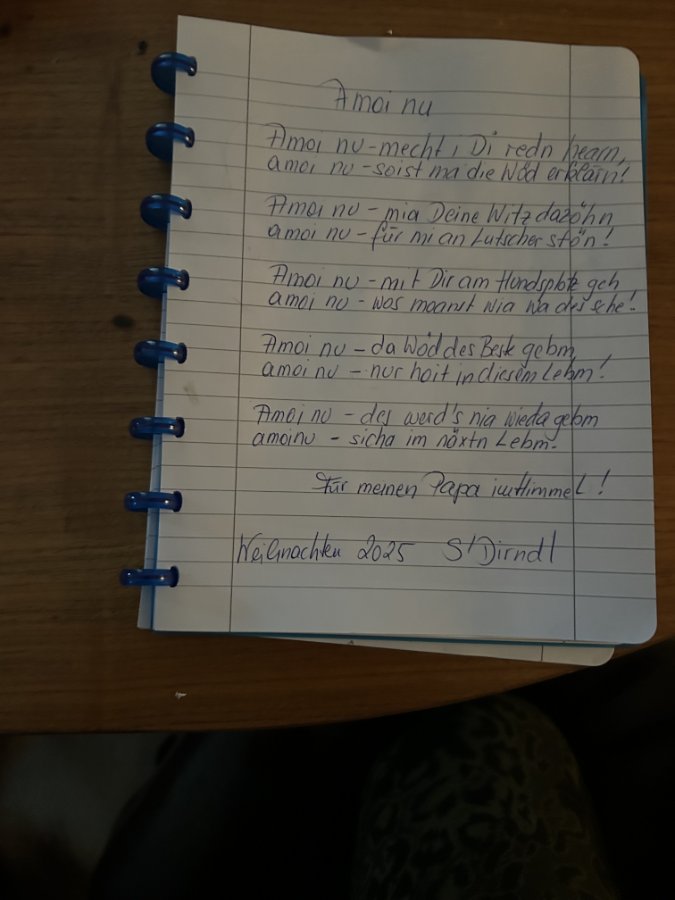 Amoi nu
Amoi nu - mecht i Di redn hearn,
amoi nu - soist ma die Wöd erklärn!
Amoi nu - mia Deine Witz dazöhn
amoi nu - für mi an Lutscher stön!
Amoi nu - mit Dir am Hundsplotz geh
amoi nu - wos moanst wia wa des sche!
Amoi nu - da Wöd des Beste gebm,
amoi nu - nur hoit in diesem Lebm!
Amoi nu - des werd's nia wieda gebm
amoi nu - sicha im näxtn Lebm.
Für meinen Papa im Himmel!
Weihnachten 2025 S'Dirndl